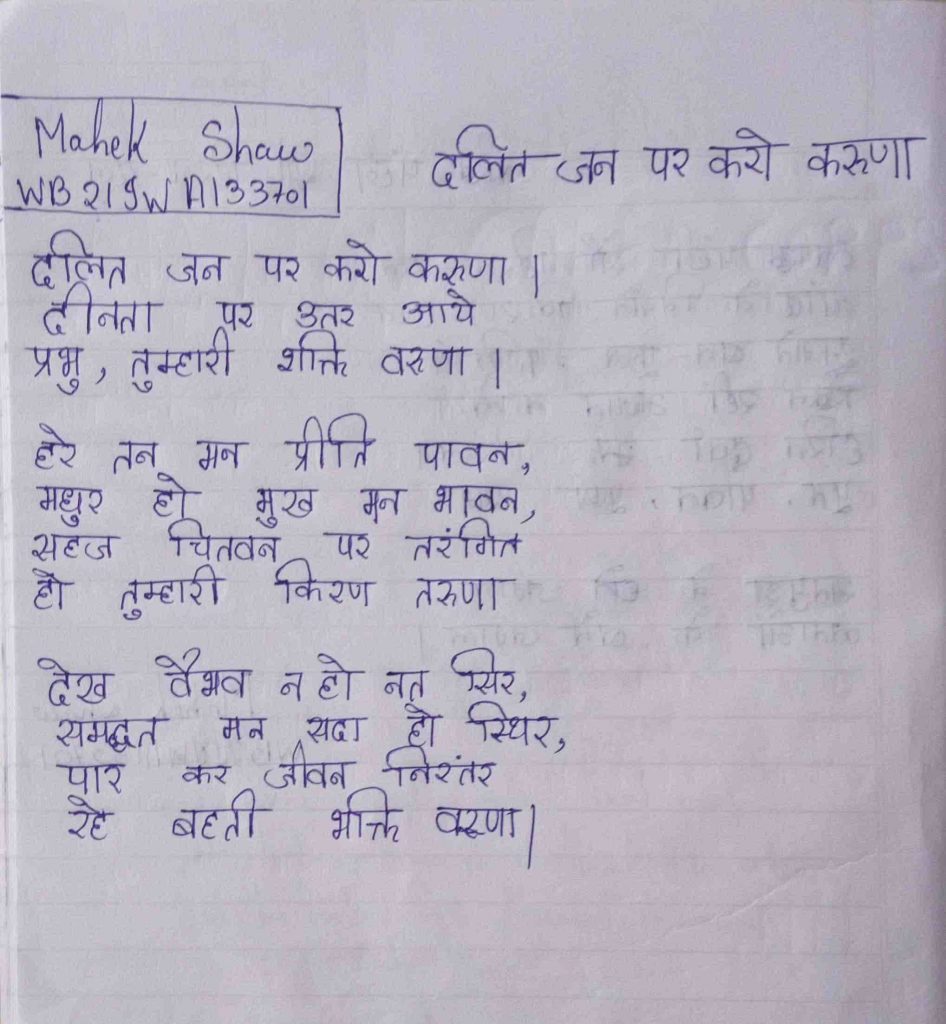 Mahek Shaw
WB21SWA133701
दलित जन पर करो करुणा
दलित जन पर करो करुणा।
दीनता पर उतर आये
प्रभु, तुम्हारी शक्ति वरुणा।
हरे तन मन प्रीति पावन,
मधुर हो मुख मन भावन,
सहज चितवन पर तरंगित
हो तुम्हारी किरण तरुणा
देख वैभव न हो नत सिर,
समद्धत मन सदा हो स्थिर,
पार कर जीवन निरंतर
रहे बहती भक्ति वरूणा।